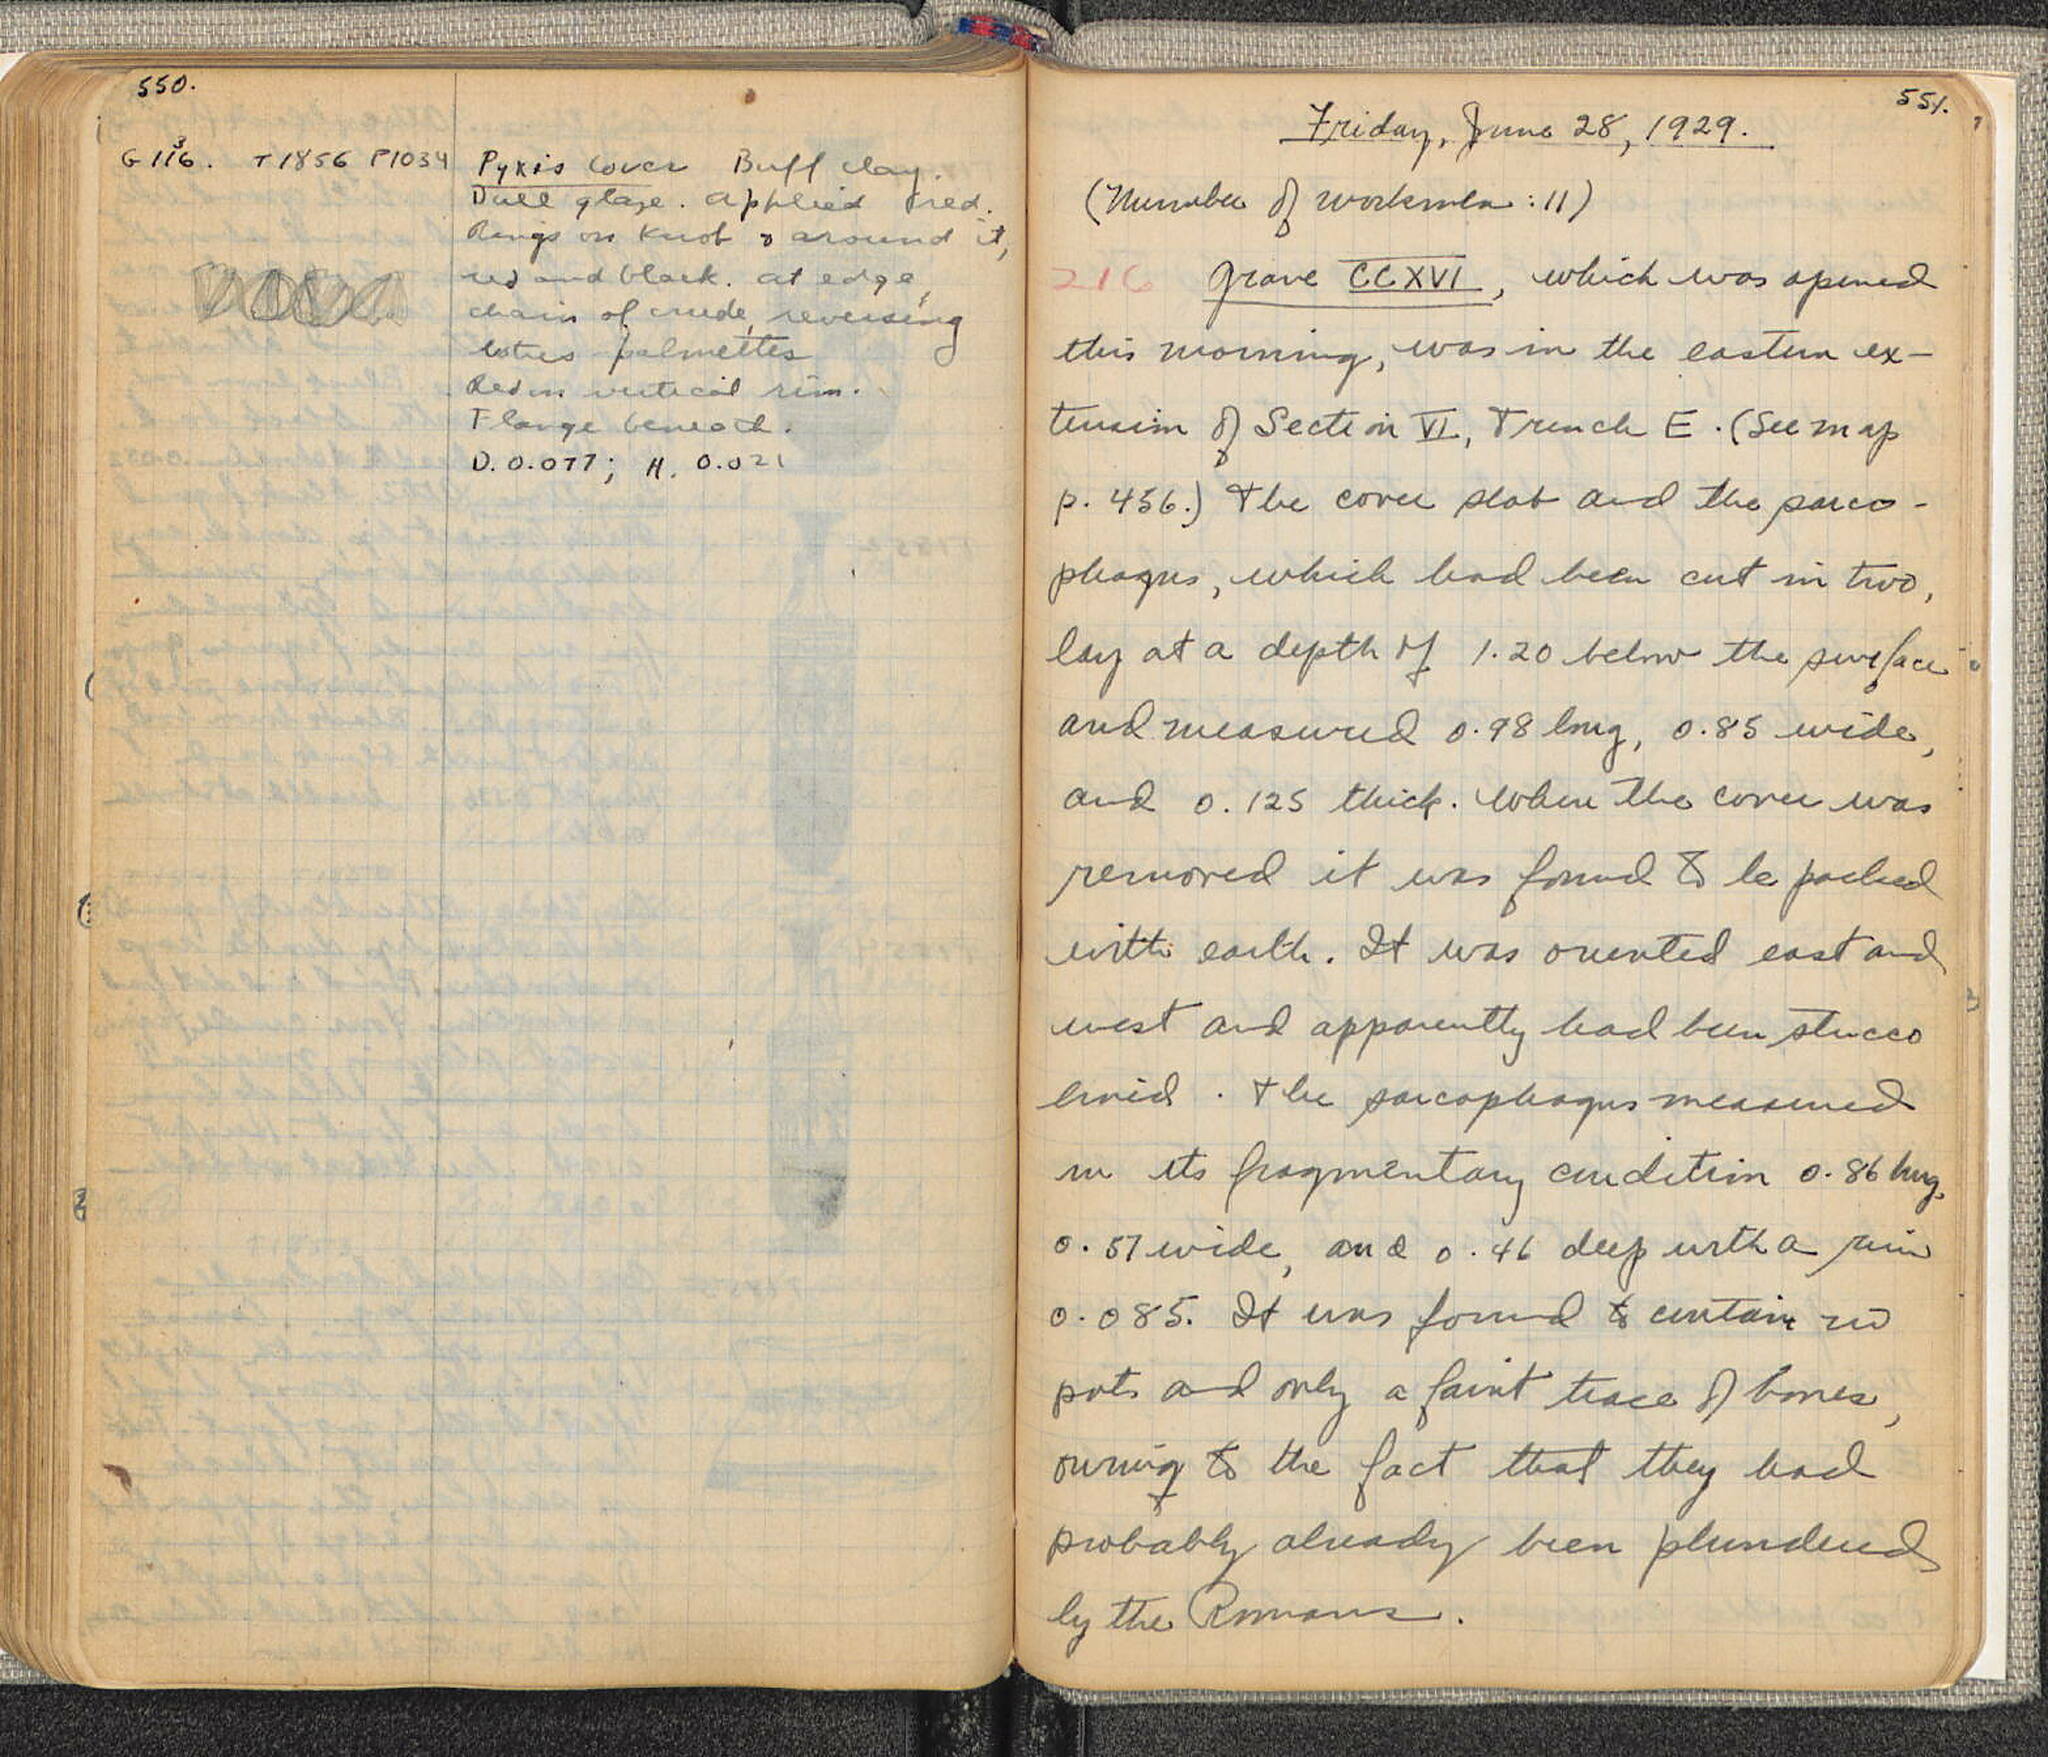 550.
G 116. 3 T1856 P1034
Pyxis cover Buff clay.
Dull glaze. applied red.
Rings on knob & around it,
red and black. at edge,
chain of crude, reversing
lotus palmettes
Red on vertical rim.
Flange beneath.
D. 0.077; H. 0.021
551.
Friday, June 28, 1929.
(Number of workmen: 11)
216 Grave CCXVI, which was opened
this morning, was in the eastern ex-
tension of Section VI, Trench E. (See map
p. 456.) The cover slab and the sarco-
phagus, which had been cut in two,
lay at a depth of 1.20 below the surface
and measured 0.98 long, 0.85 wide,
and 0.125 thick. When the cover was
removed it was found to be packed
with earth. It was oriented east and
west and apparently had been stucco
lined. The sarcophagus measured
in its fragmentary condition 0.86 long,
0.57 wide, and 0.46 deep with a rim
0.085. It was found to contain no
pots and only a faint trace of bones,
owing to the fact that they had
probably already been plundered
by the Romans.